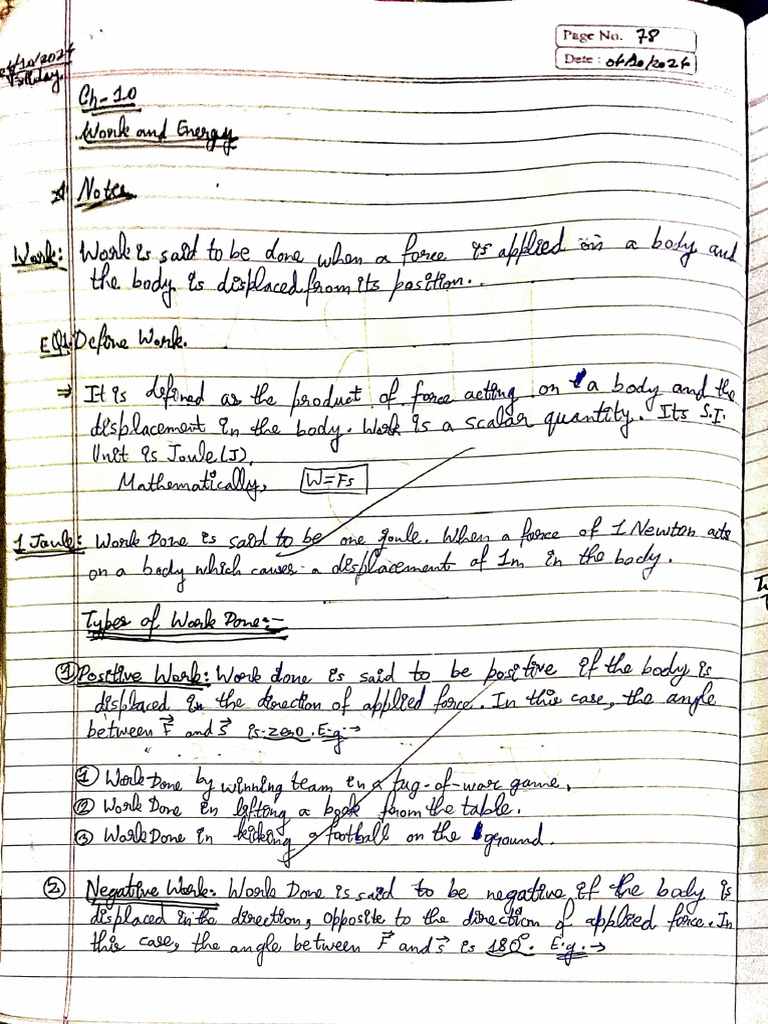 Page No. 78
Date: 04/10/2024
/10/2024
Friday.
Ch-10
Work and Energy
Notes
Work: Work is said to be done when a force is applied on a body and
the body is displaced from its position.
EQ1. Define Work.
⇒ It is defined as the product of force acting on a body and the
displacement in the body. Work is a scalar quantity. Its S.I.
Unit is Joule(J).
Mathematically, W=Fs
1 Joule: Work Done is said to be one joule. When a force of 1 Newton acts
on a body which causes a displacement of 1m in the body.
Types of Work Done:-
① Positive Work: Work done is said to be positive if the body is
displaced in the direction of applied force. In this case, the angle
between F⃗ and s⃗ is zero. E.g.→
① Work Done by winning team in a tug-of-war game.
② Work Done in lifting a book from the table.
③ Work Done in kicking a football on the ground.
② Negative Work: Work Done is said to be negative if the body is
displaced in the direction, opposite to the direction of applied force. In
this case, the angle between F⃗ and s⃗ is 180°. E.g.→